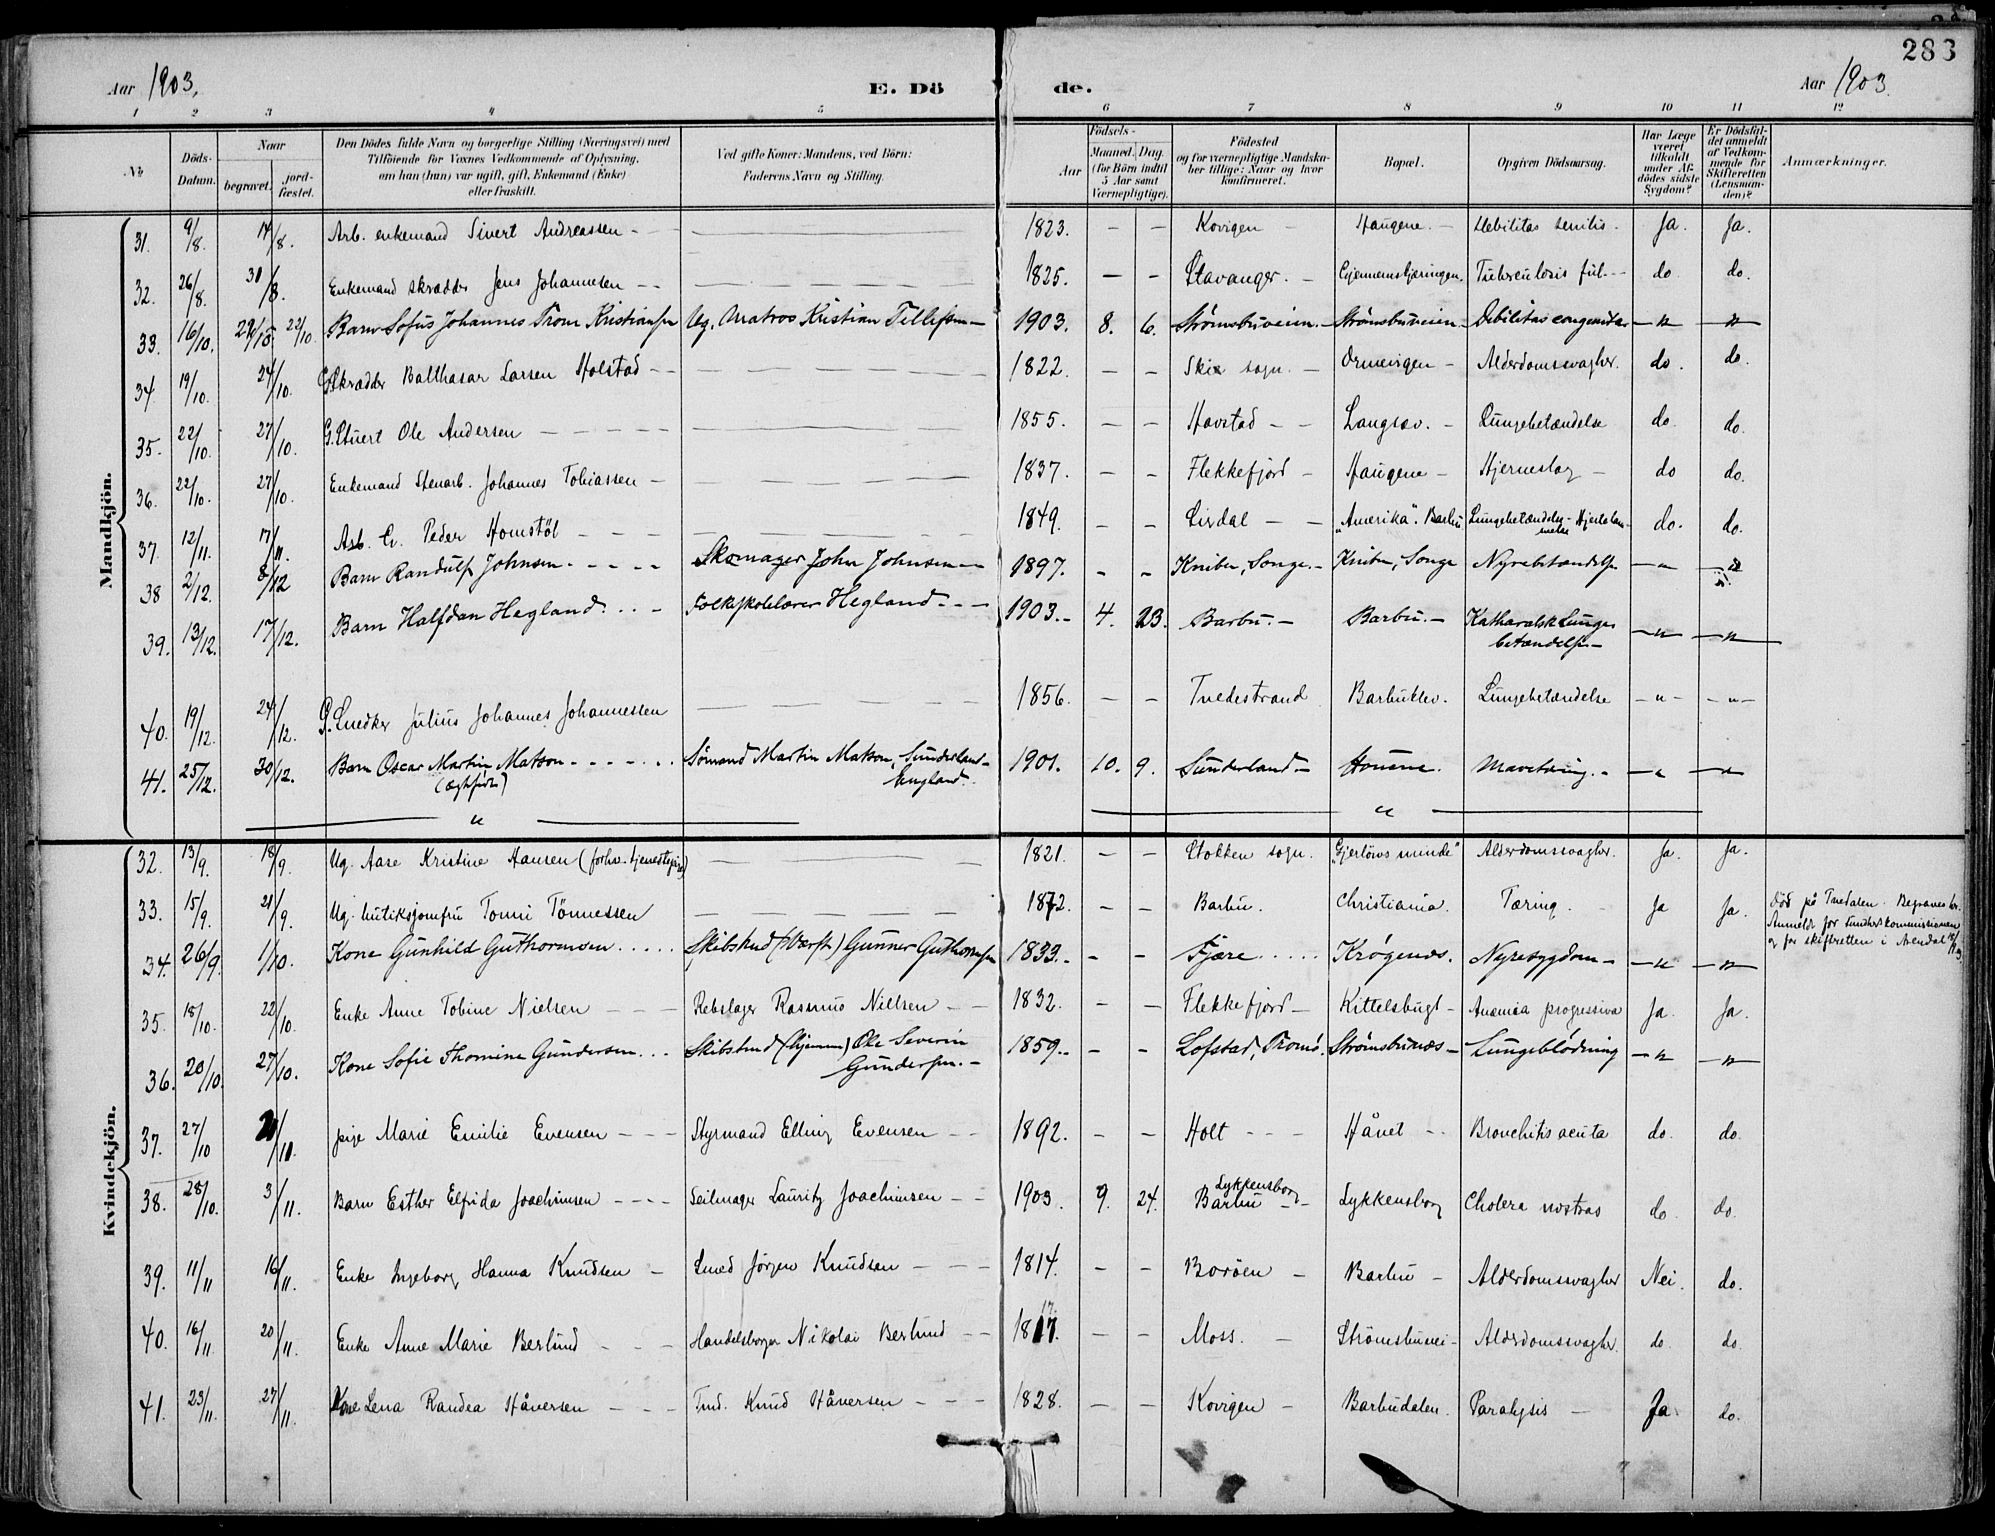 283
Aar 1903. E. Dö de. Aar 1903.
1 2 3 4 5 6 7 8 9 10 11 12
No. Döds-Datum. Naar begravet. jord-fæstet. Den Dödes fulde Navn og borgerlige Stilling (Næringsvei) med Tilföiende for Voxnes Vedkommende af Oplysning, om han (hun) var ugift, gift, Enkemand (Enke) eller fraskilt. Ved gifte Koner: Mandens, ved Börn: Faderens Navn og Stilling. Födsels- Aar Maaned. Dag. (for Börn indtil 5 Aar samt Værnepligtige). Födested og for værnepligtige Mandska-ber tillige: Naar og hvor konfirmeret. Bopæl. Opgiven Dödsaarsag. Har Læge været tilkaldt under Af-dödes sidste Sygdom? Er Dödsfal-det anmeldt af Vedkom-mende for Skifteretten (Lensman-den)? Anmærkninger.
Mandkjön.
31. 9/8. 14/8. Arb. enkemand Sivert Andreassen - - 1823. - - Kovigen - Haugene. - Debilitas senilis. Ja. Ja.
32. 26/8. 30/8. Enkemand skrædder Jens Johannesen - - 1825. - - Stavanger. - Gjennemskjæringen. Tuberculosis pul. - - do do.
33. 16/10. 22/10. Barn Sofus Johannes Trom Kristiansen Ug. Matros Kristian Tellefsen - 1903. 8. 6. Strømsbuveien. - Strømsbuveien - Debilitas congenita - - " - - " -
34. 19/10. 24/10. G. Skrædder Balthasar Larsen Holstad - - 1822. - - Skie sogn. - Ormevigen - Alderdomssvaghed. do. do.
35. 22/10. 27/10. G. Stuert Ole Andersen - - - 1855. - - Havstad - - Langsæv. - Lungebetændelse do. do.
36. 22/10. 27/10. Enkemand Stenarb. Johannes Tobiassen - 1837. - - Flekkefjord - Haugene - Hjerneslag - do do.
37. 12/11. 17/11. Arb. E. Peder Homstøl - - - 1849. - - Lirdal - - "Amerika". Barbu Lungebetændelse - Hjertelammelse do. do.
38 2/12. 8/12 Barn Randulf Johnsen. - - - Skomager John Johnsen - - 1897. - - Kniben, Songe. - Kniben, Songe Nyrebetændelse - " - - " -
39. 13/12. 17/12. Barn Halfdan Hegland . . - Folkeskolelærer Hegland - - - 1903. - 4. 23. Barbu. - Barbu. - Katharalsk Lungebetændelse. - - " - - " -
40. 19/12. 24/12. G. Snedker Julius Johannes Johannessen 1856. - - Tvedestrand Barbuklev. Lungebetændelse - " - - " -
41. 25/12. 30/12. Barn Oscar Martin Matson - - - (ægtefødt) Sømand Martin Matson, Sunderland - England. 1901. 10. 9. Sunderland - Houene. Mavetæring. - - " - - " -
" "
Kvindekjön.
32. 13/9. 18/9. Ug. Aase Kristine Hansen (forhv. tjenestepige) 1821. - - Stokken sogn. "Gjerløvs minde" Alderdomssvaghed. Ja. Ja.
33. 15/9. 21/9. Ug. butiksjomfru Tomi Tönnessen 1872. - - Barbu. Christiania. Tæring. Ja Ja. Död på
34. 26/9. 1/10. Kone Gunhild Guthormsen . . . . . Skibstmd (Værft) Gunner Guthormsen 1833. - - - Fjære . . . . . Krøgenes. Nyresygdom - - " - - " - og for skifteretten i Arendal
35. 18/10. 22/10. Enke Anne Tobine Nielsen - - - Rebslager Rasmus Nielsen - - 1832. - - Flekkefjord - Kittelsbugt - Anæmia progressiva Ja. Ja.
36. 20/10. 27/10. Kone Sofie Thomine Gundersen . . . Skibstmd (hjemme) Ole Severin Gundersen. - 1859. - - - Lofstad, Tromø. Strømsbunæs - Lungeblødning - " - - " -
37. 27/10 /11 pige Marie Emilie Evensen - - - Styrmand Elling Evensen - - 1892. - - Holt - - - Hånet - - Bronchitis acuta do. do.
38. 28/10. 3/11. Barn Esther Elfida Joachimsen - - - Seilmager Lauritz Joachimsen - - 1903. 9. 24. Lykkensborg Barbu - - Lykkensborg Cholera nostras do. do.
39. 11/11 16/11. Enke Ingeborg Hanna Knudsen - Smed Jörgen Knudsen - - - 1814. - - Boröen - Barbu - Alderdomssvaghed Nei. do.
40. 16/11 20/11. Enke Anne Marie Berlund - - - Handelsborger Nikolai Berlund - - 1817. 17. - - Moss. - Strömsbuvei - Alderdomssvaghed. do. do.
41. 23/11. 27/11. Kone Lena Randea Håversen - - - Tmd. Knud Håversen - - - 1828. - - Kovigen - Barbudalen. Paralysis - Ja do.